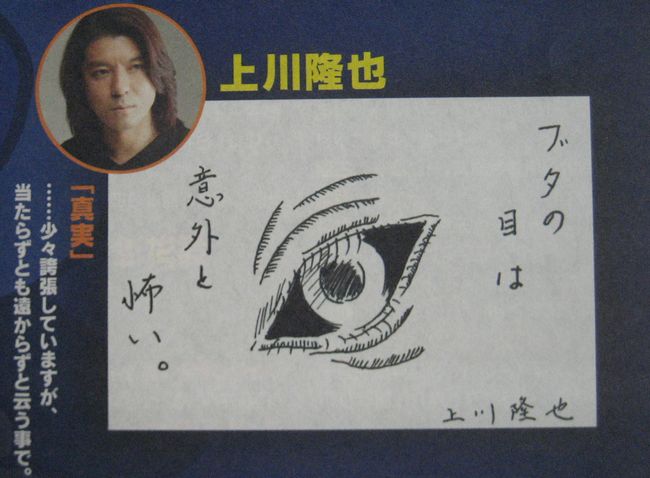 上川隆也
ブタの
目は
意外と
怖い。
上川隆也
「真実」
……少々誇張していますが、
当たらずとも遠からずと云う事で。